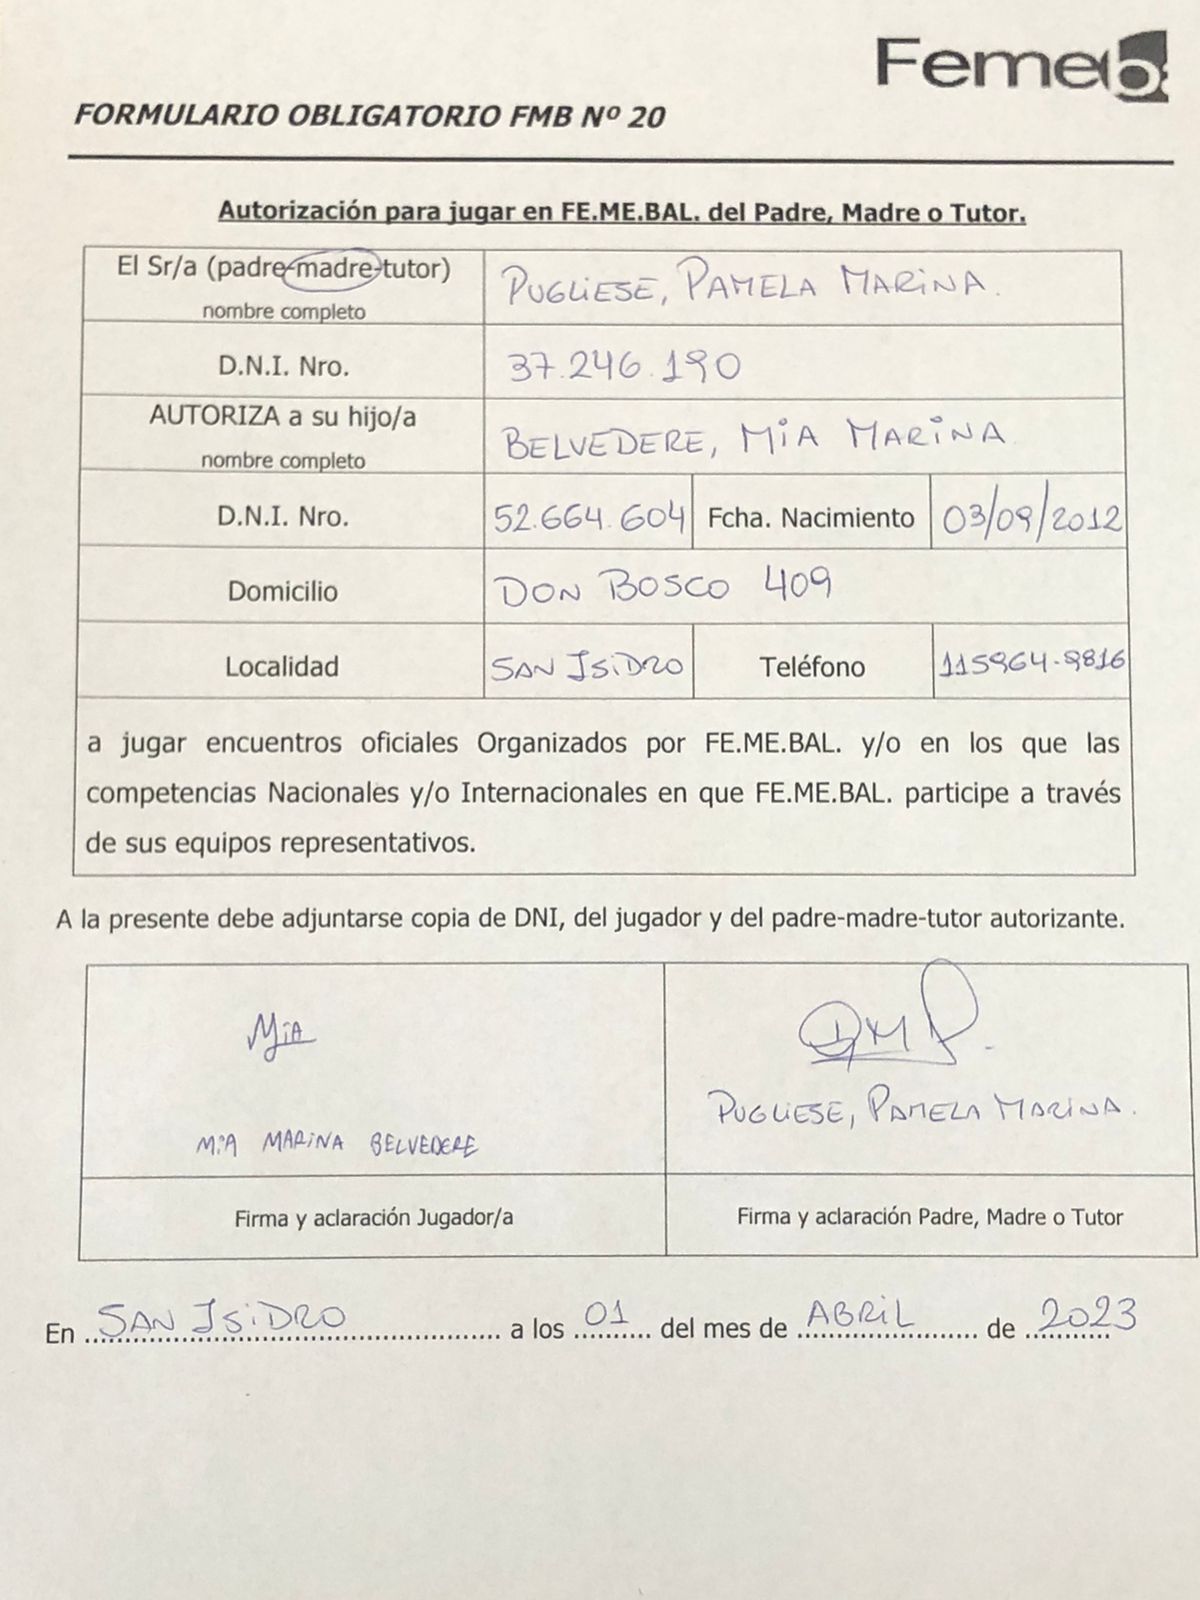 Femeb
FORMULARIO OBLIGATORIO FMB Nº 20
Autorización para jugar en FE.ME.BAL. del Padre, Madre o Tutor.
El Sr/a (padre-madre-tutor)
nombre completo
PUGLIESE, PAMELA MARINA.
D.N.I. Nro.
37.246.190
AUTORIZA a su hijo/a
nombre completo
BELVEDERE, MIA MARINA
D.N.I. Nro.
52.664.604
Fcha. Nacimiento
03/09/2012
Domicilio
DON BOSCO 409
Localidad
SAN ISIDRO
Teléfono
115964-9816
a jugar encuentros oficiales Organizados por FE.ME.BAL. y/o en los que las
competencias Nacionales y/o Internacionales en que FE.ME.BAL. participe a través
de sus equipos representativos.
A la presente debe adjuntarse copia de DNI, del jugador y del padre-madre-tutor autorizante.
MIA
MIA MARINA BELVEDERE
PUGLIESE, PAMELA MARINA.
Firma y aclaración Jugador/a
Firma y aclaración Padre, Madre o Tutor
En SAN ISIDRO a los 01 del mes de ABRIL de 2023